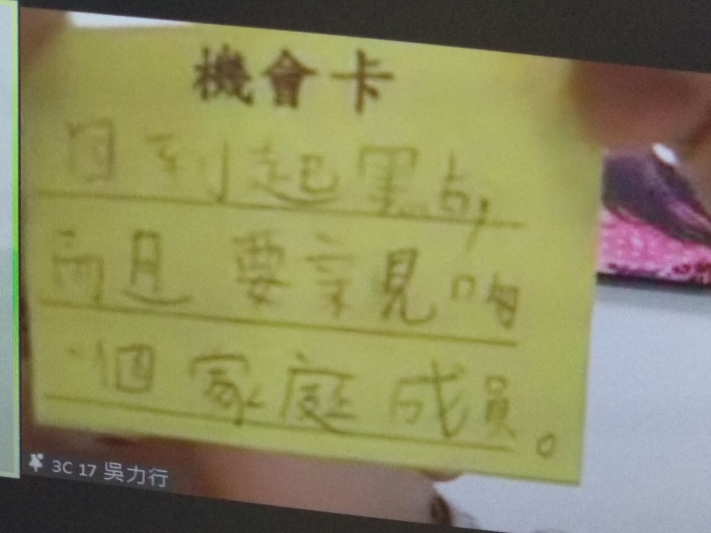 機會卡
回到起點，
而且要親吻
一個家庭成員。
3C 17 吳力行